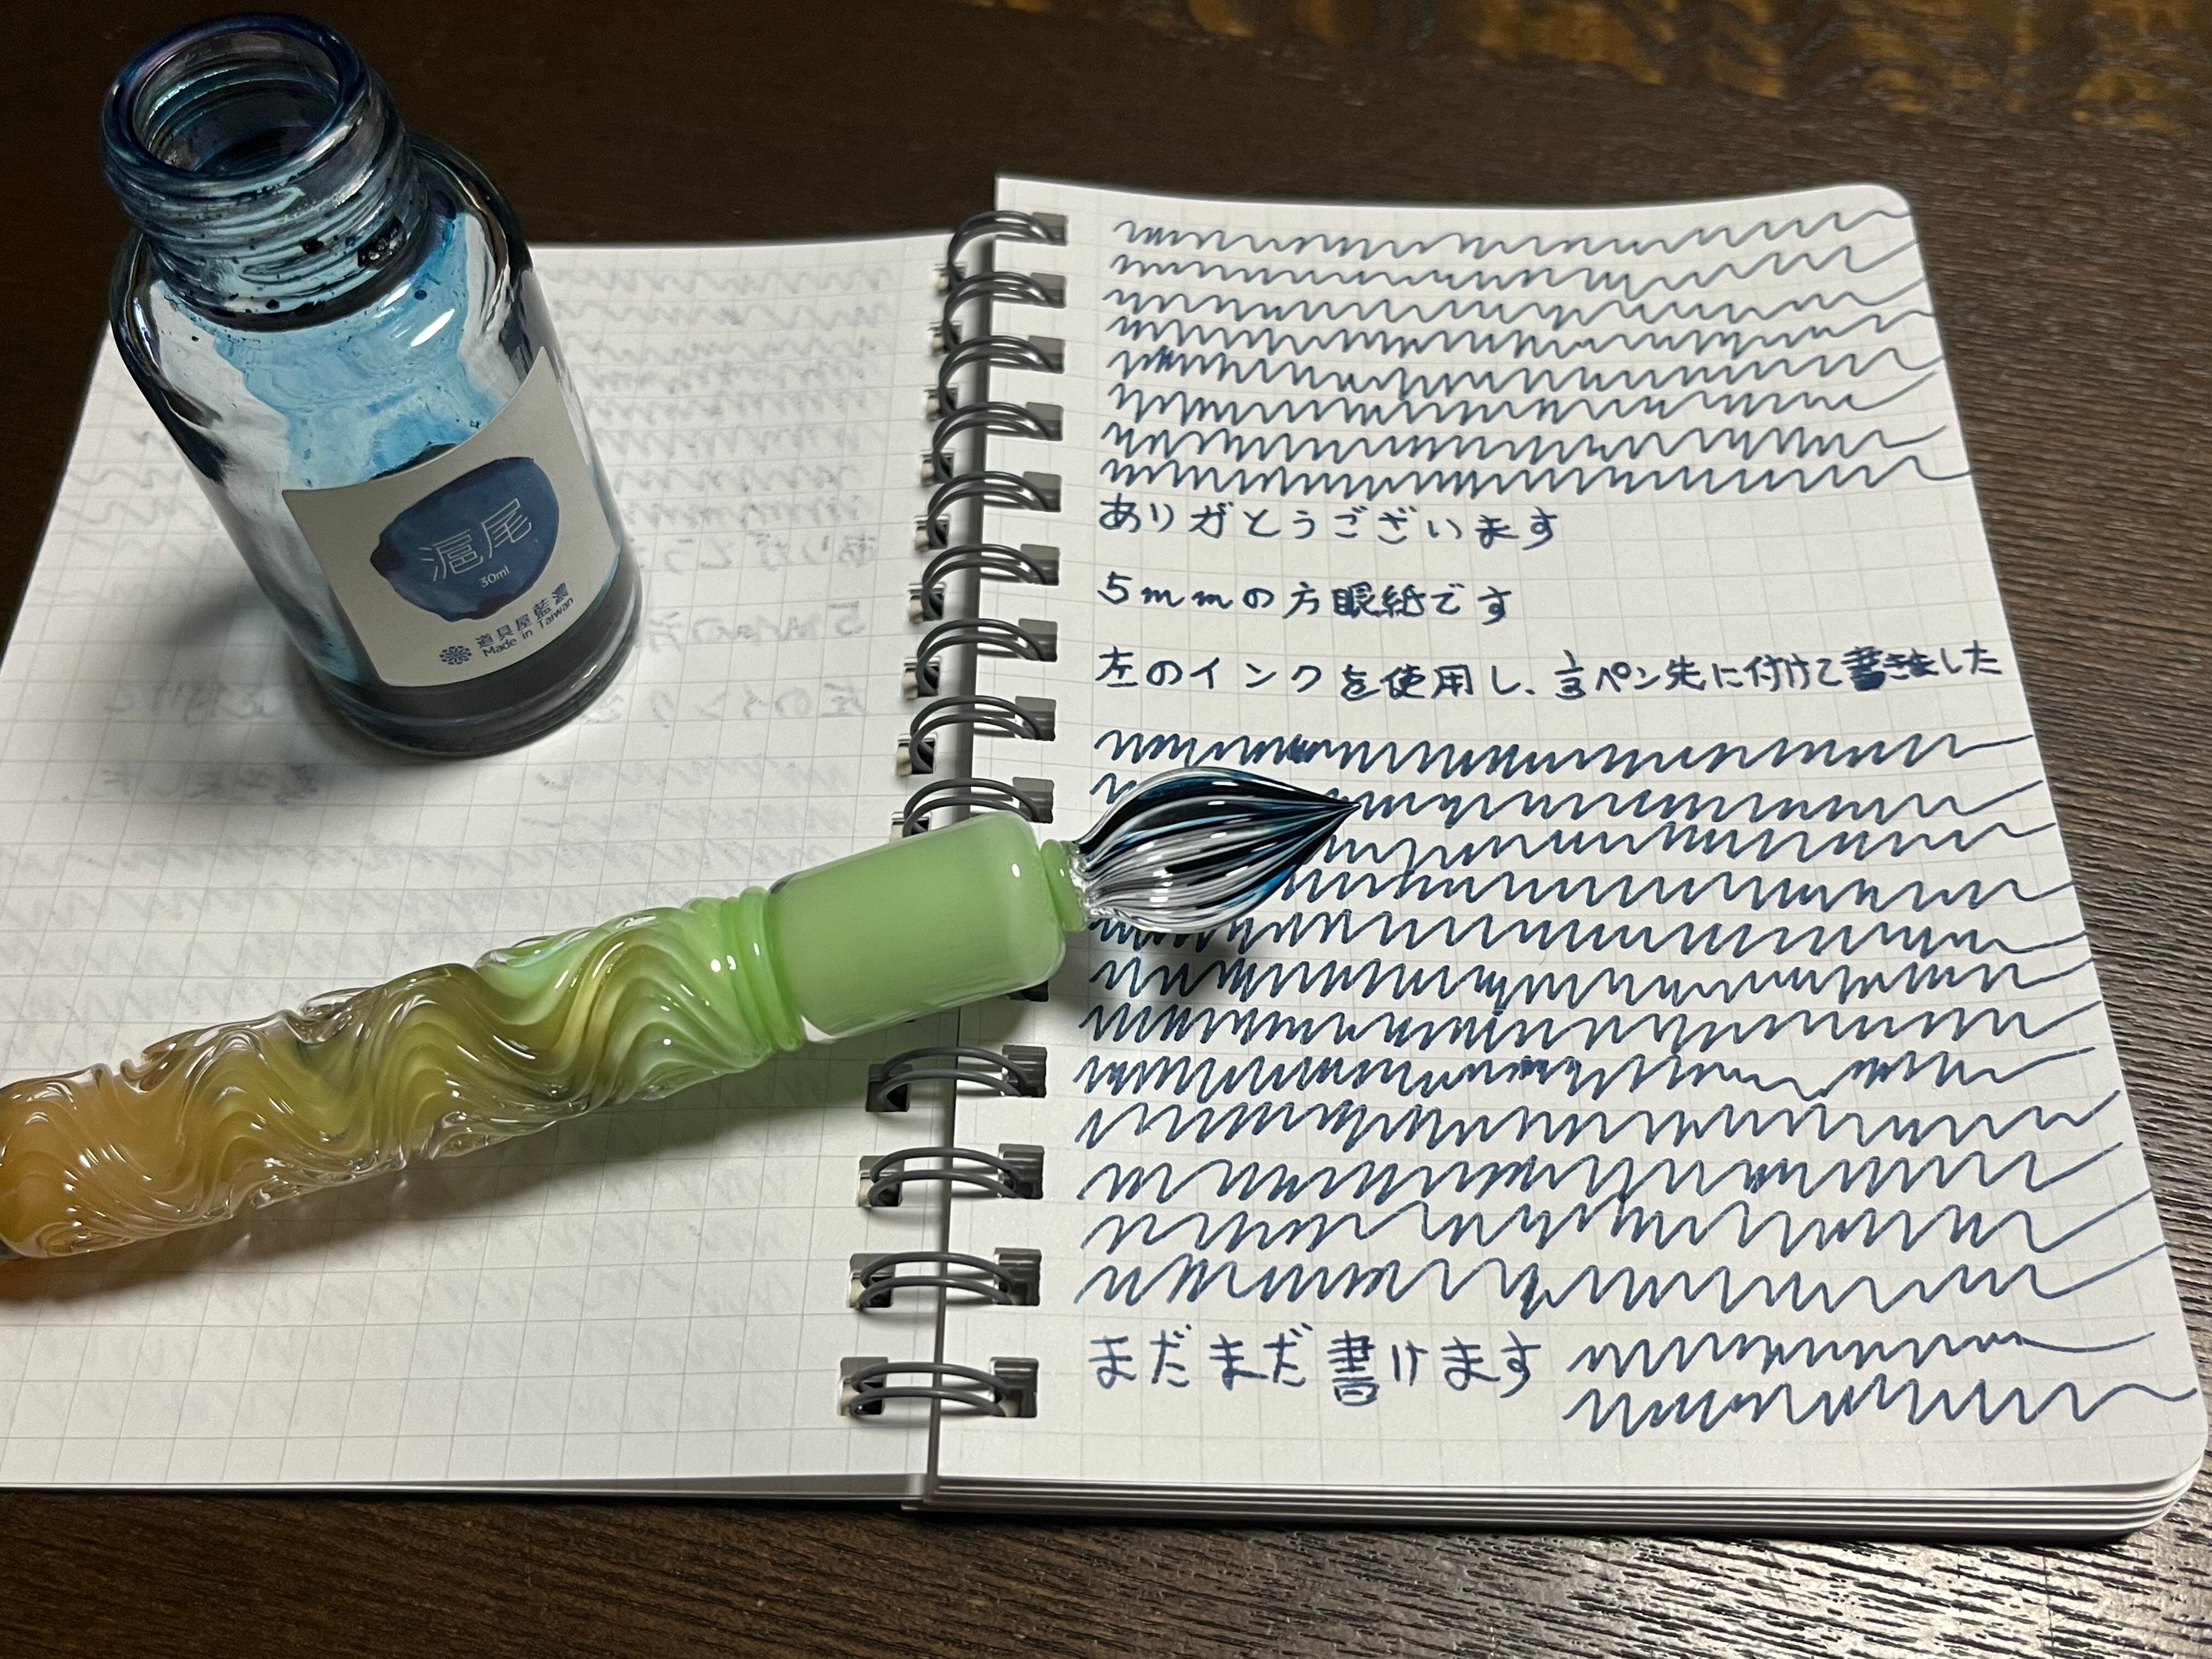 滬尾
30ml
道具屋藍濃
Made in Taiwan
ありがとうございます
5mmの方眼紙です
左のインクを使用し、1/3ペン先に付けて書きました
まだまだ書けます